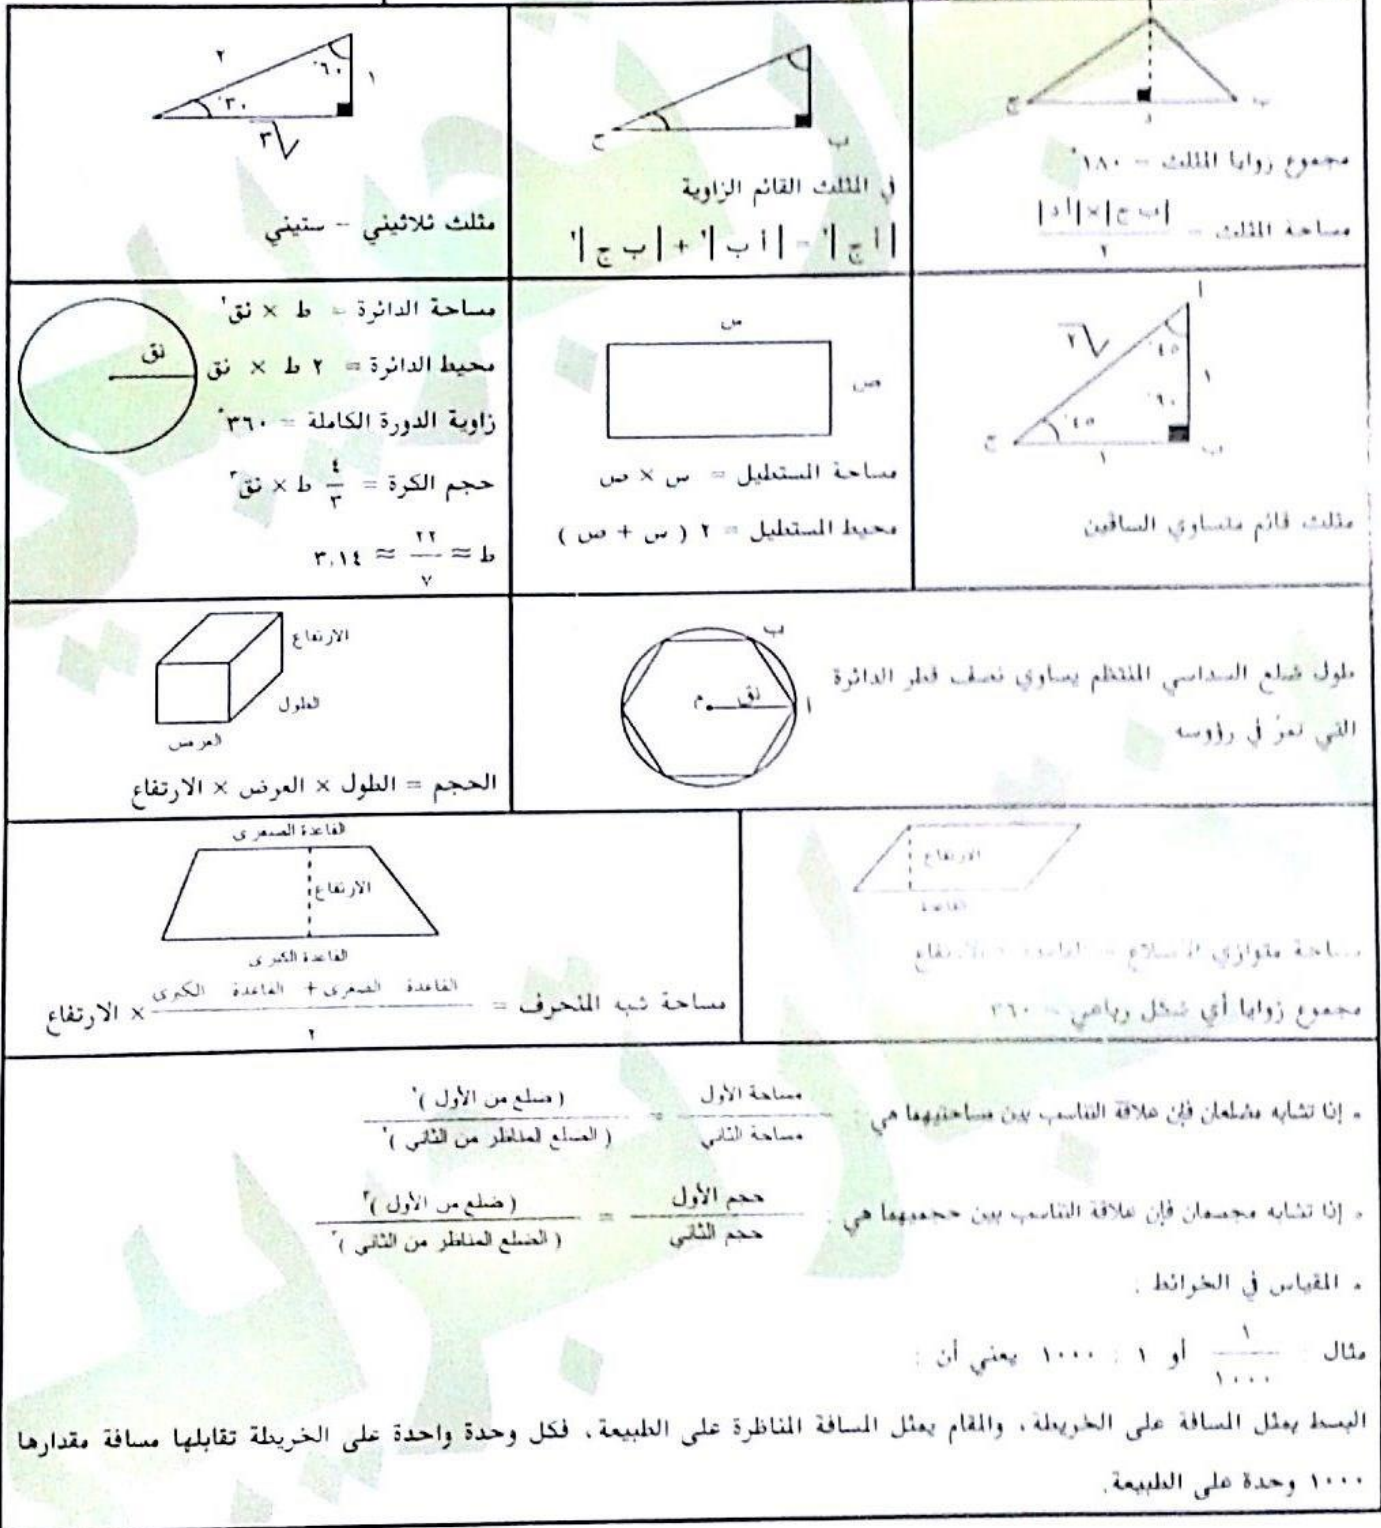 ج د ب
مجموع زوايا المثلث = ١٨٠°
مساحة المثلث = |ب ج|×|أ د| / ٢
ج ب
في المثلث القائم الزاوية
|أ ج|² = |أ ب|² + |ب ج|²
٢ ٦٠° ١
٣٠°
√٣
مثلث ثلاثيني - ستيني
أ
√٢ ٤٥° ١
٩٠°
ج ٤٥° ١ ب
مثلث قائم متساوي الساقين
س
ص
مساحة المستطيل = س × ص
محيط المستطيل = ٢ ( س + ص )
نق
مساحة الدائرة = ط × نق²
محيط الدائرة = ٢ ط × نق
زاوية الدورة الكاملة = ٣٦٠°
حجم الكرة = ٤/٣ ط × نق³
ط ≈ ٢٢/٧ ≈ ٣,١٤
طول ضلع السداسي المنتظم يساوي نصف قطر الدائرة
التي تمرّ في رؤوسه
ب
أ نق م
الارتفاع
الطول
العرض
الحجم = الطول × العرض × الارتفاع
الارتفاع
القاعدة
مساحة متوازي الأضلاع = القاعدة × الارتفاع
مجموع زوايا أي شكل رباعي = ٣٦٠
القاعدة الصغرى
الارتفاع
القاعدة الكبرى
مساحة شبه المنحرف = القاعدة الصغرى + القاعدة الكبرى / ٢ × الارتفاع
• إذا تشابه مضلعان فإن علاقة التناسب بين مساحتيهما هي : مساحة الأول / مساحة الثاني = ( ضلع من الأول )² / ( الضلع المناظر من الثاني )²
• إذا تشابه مجسمان فإن علاقة التناسب بين حجميهما هي : حجم الأول / حجم الثاني = ( ضلع من الأول )³ / ( الضلع المناظر من الثاني )³
• المقياس في الخرائط :
مثال : ١/١٠٠٠ أو ١ : ١٠٠٠ يعني أن :
البسط يمثل المسافة على الخريطة ، والمقام يمثل المسافة المناظرة على الطبيعة ، فكل وحدة واحدة على الخريطة تقابلها مسافة مقدارها
١٠٠٠ وحدة على الطبيعة.